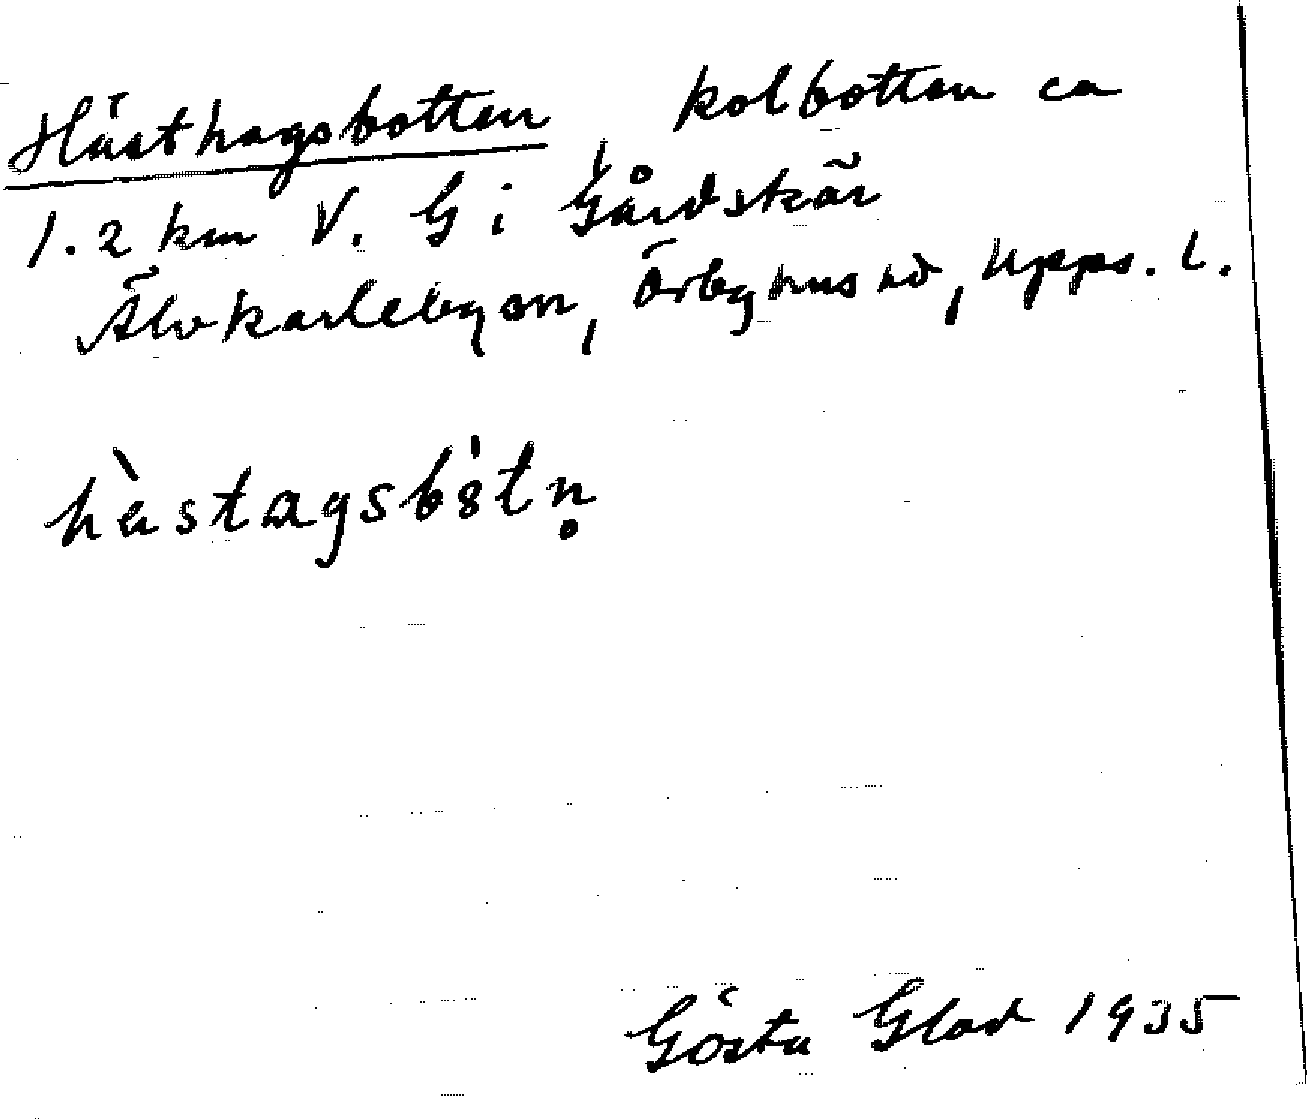 Hästhagsbotten, kolbotten ca
1.2 km V. G i Gårdskär
Älvkarleby sn, Örbyhus hd, Upps. l.
hästagsbòtn̥
Gösta Glad 1935